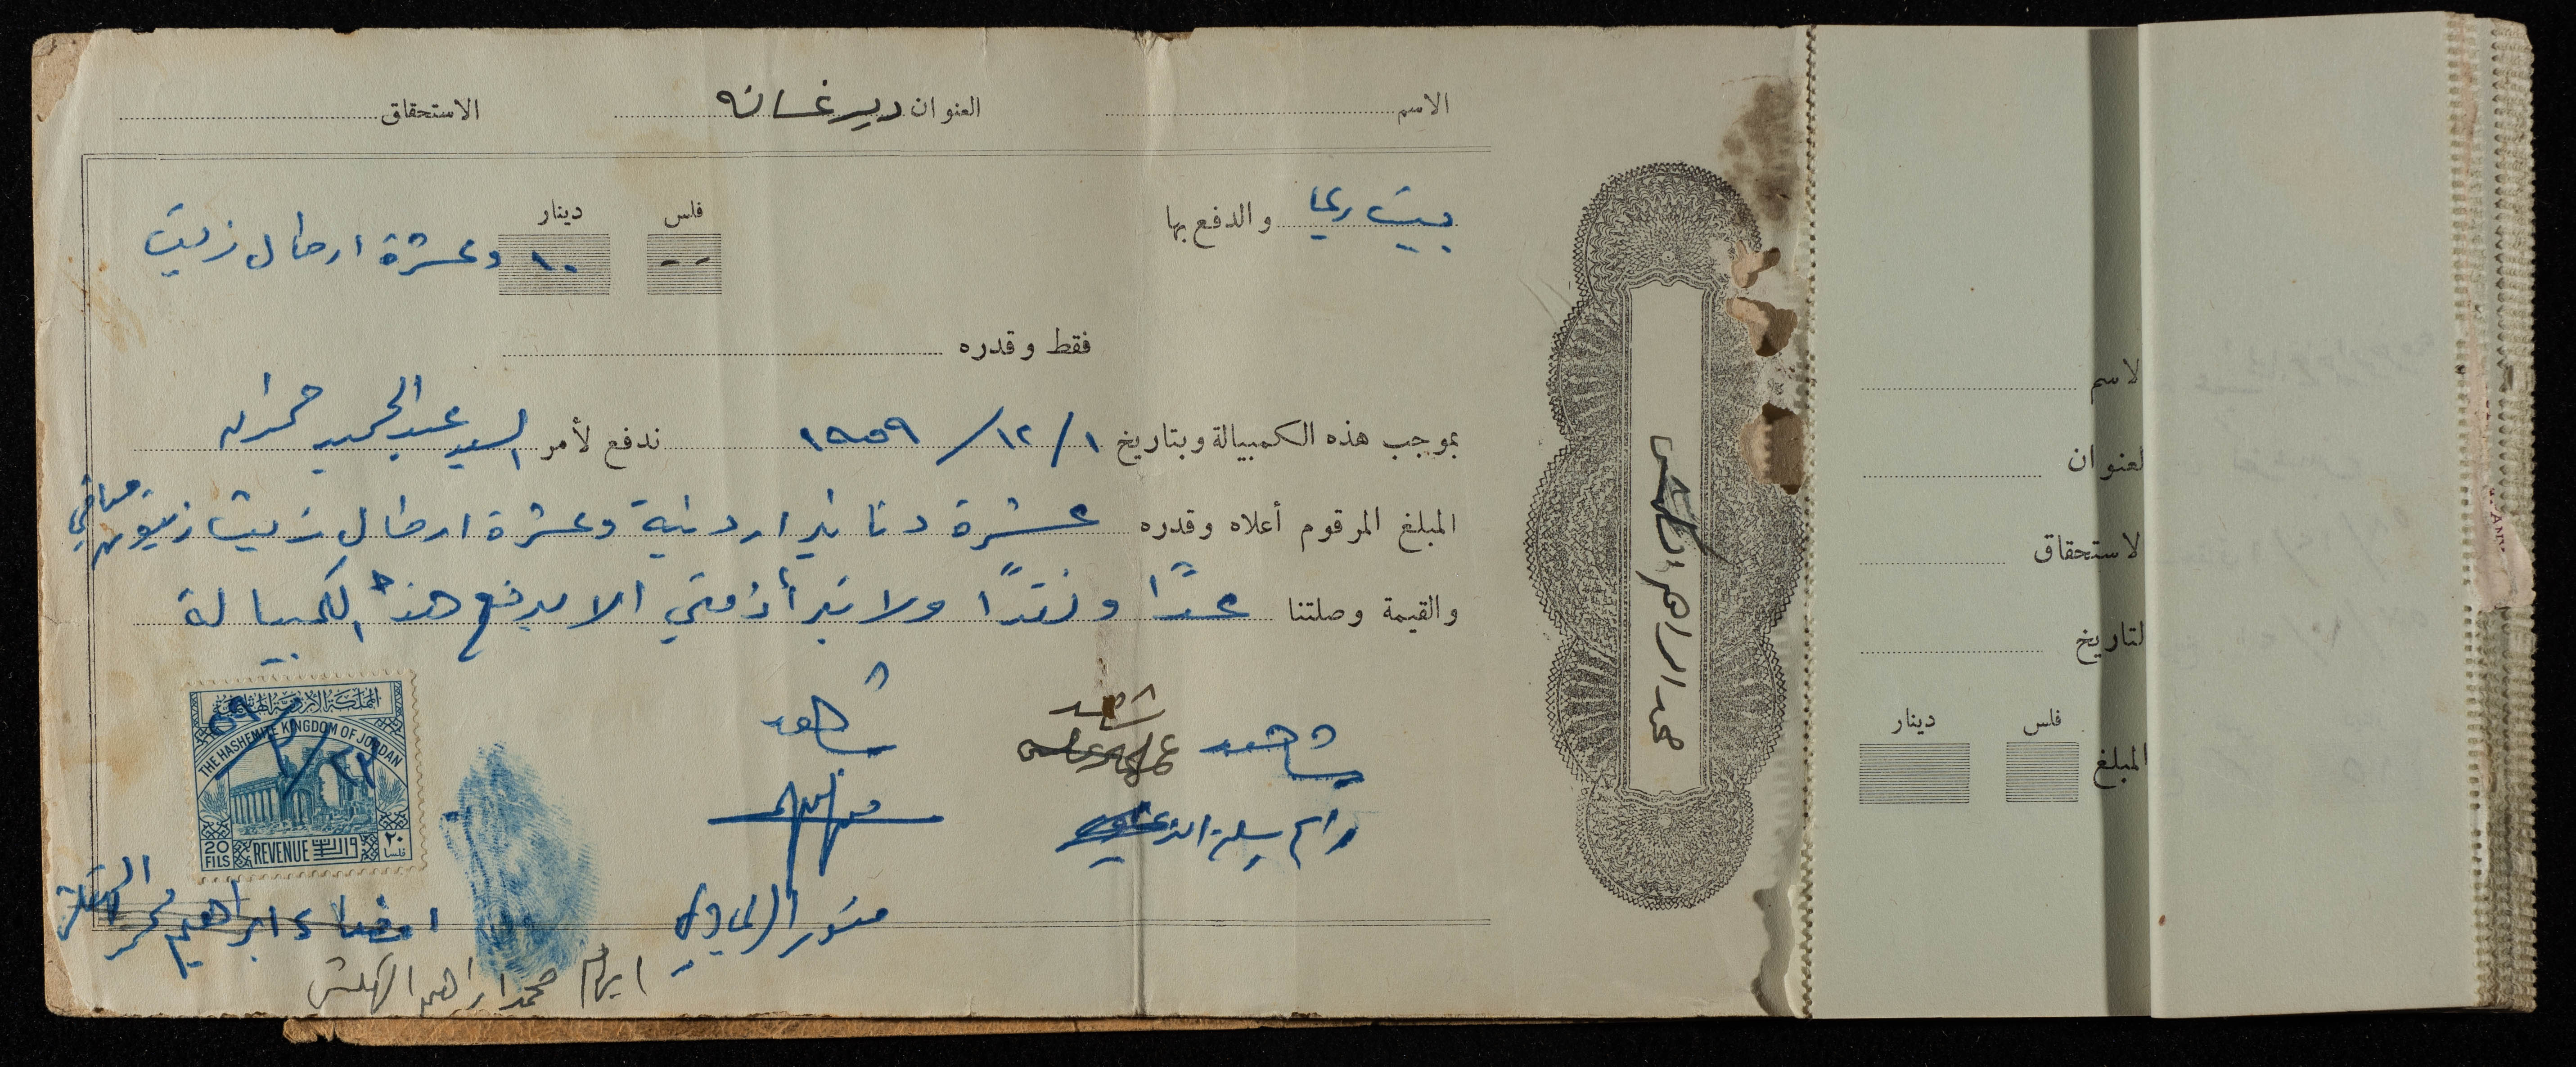 الاسم العنوان دير غسانه الاستحقاق
بيت ريما والدفع بها
فلس دينار
-- ١٠ وعشرة ارطال زيت
فقط وقدره
بموجب هذه الكمبيالة وبتاريخ ١/١٢/١٩٥٩ ندفع لأمر السيد عبد الحميد حمدان
المبلغ المرقوم أعلاه وقدره عشرة دنانير اردنية وعشرة ارطال زيت زيتون صافي
والقيمة وصلتنا عدًا ونقدًا ولا تبرأ ذمتي الا بدفع هذه الكمبيالة
شاهد
شاهد
شاهد
منور الريماوي
المملكة الأردنية الهاشمية
THE HASHEMITE KINGDOM OF JORDAN
٥٩
20 FILS REVENUE واردات ٢٠ فلسا
امضاء ابراهيم محمد
محمد ابراهيم
محمد ابراهيم
لاسم
لعنوان
لاستحقاق
لتاريخ
فلس دينار
المبلغ